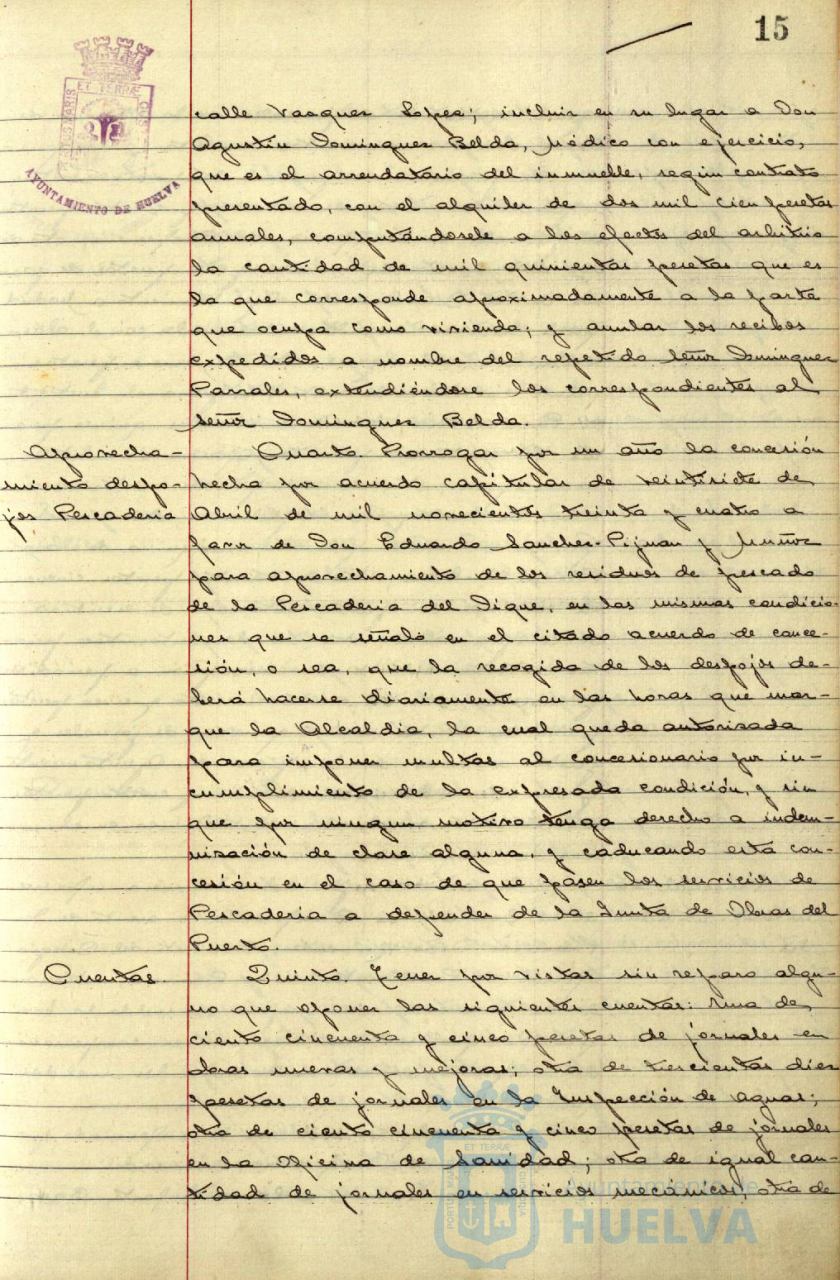 15
PORTUS MARIS ET TERRAE CUSTODIA
AYUNTAMIENTO DE HUELVA
calle Vazquez Lopez; incluir en su lugar a Don
Agustín Dominguez Belda, Médico con ejercicio,
que es el arrendatario del inmueble, según contrato
presentado, con el alquiler de dos mil cien pesetas
anuales, computándosele a los efectos del arbitrio
la cantidad de mil quinientas pesetas que es
la que corresponde aproximadamente a la parte
que ocupa como vivienda; y anular los recibos
expedidos a nombre del repetido señor Dominguez
Parrales, extendiéndose los correspondientes al
señor Dominguez Belda.
Aprovecha-
miento despo-
jos Pescaderia
Cuarto. Prorrogar por un año la concesión
hecha por acuerdo capitular de veintisiete de
Abril de mil novecientos treinta y cuatro a
favor de Don Eduardo Sanchez-Pijuan y Muñoz
para aprovechamiento de los residuos de pescado
de la Pescaderia del Dique, en las mismas condicio-
nes que se señaló en el citado acuerdo de conce-
sión, o sea, que la recogida de los despojos de-
berá hacerse diariamente en las horas que mar-
que la Alcaldia, la cual queda autorizada
para imponer multas al concesionario por in-
cumplimiento de la expresada condición, y sin
que por ningun motivo tenga derecho a indem-
nización de clase alguna, y caducando esta con-
cesión en el caso de que pasen los servicios de
Pescaderia a depender de la Junta de Obras del
Puerto.
Cuentas.
Quinto. Tener por vistas sin reparo algu-
no que oponer las siguientes cuentas: una de
ciento cincuenta y cinco pesetas de jornales en
obras nuevas y mejoras; otra de trescientas diez
pesetas de jornales en la Inspección de aguas;
otra de ciento cincuenta y cinco pesetas de jornales
en la Oficina de Sanidad; otra de igual can-
tidad de jornales en servicios mecánicos; otra de
Ayuntamiento de
HUELVA